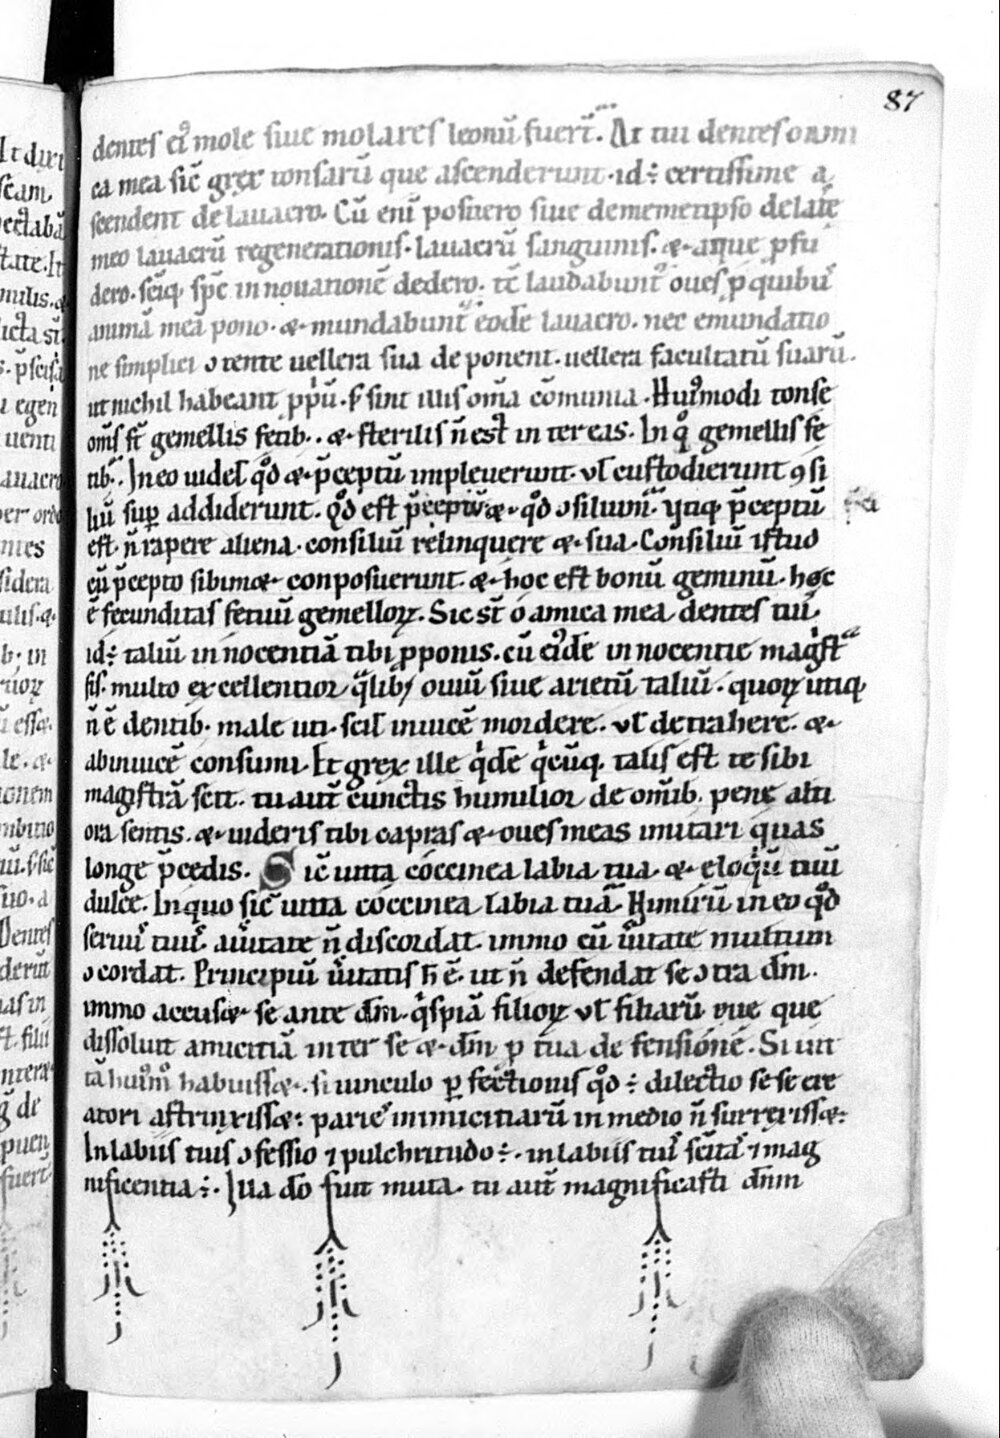 87
dentes ei᷒ mole siue molares leonū fuer̄t. At tui dentes o ami
ca mea sic̄ grex tonsarū que ascenderunt. id ÷ certissime a
scendent de lauacro. Cū eni posuero siue de memetipso de late
meo lauacrū regenerationis. lauacrū sanguinis. & aque p̄fu
dero. sciq; sp̄c innouationē dedero. tc̄ laudabunt᷒ oues p̱ quibus᷒
animā meā pono. & mundabunt᷒ eodē lauacro. nec emundatio
ne simplici ↄtente uellera sua deponent. uellera facultatū suarū.
ut nichil habeant pp̱iū. s̄ sint illis om̄a cōmunia. Hui᷒modi tonse
om̄s st̄ gemellis fetib;. & sterilis n̄ est inter eas. In q̊ gemellis fe
tib;. In eo uidel̄ qd̄ & p̄ceptū impleuerunt. ul̄ custodierunt ꝯsi
liū sup̱ addiderunt. Qd̄ est p̄ceptū & qd̄ ↄsiliū. Vtiq; p̄ceptū
est. n̄ rapere aliena. consiliū relinquere & sua. Consiliū istud
cū p̄cepto sibimet conposuerunt. & hoc est bonū geminū. hęc
ē fecunditas fetuū gemelloꝝ. Sic st̄ o amica mea dentes tui.
id ÷ taliū innocentiā tibi p̱ponis. cū ei᷒dē innocentie magist̄
sis. multo excellentior q̄lib; ouiū siue arietū taliū. quoꝝ utiq;
n̄ ē dentib; male uti. scil̄ inuicē mordere. ul̄ detrahere. &
abinuicē consumi. Et grex ille q̇dē q̇cūq; talis est te sibi
magistrā sert. tu aut̄ cunctis humilior de om̄ib; pene alti
ora sentis. & uideris tibi capras & oues meas imitari quas
longe p̄cedis. Sic̄ uitta coccinea labia tua. & eloq̇ū tuū
dulce. In quo sic̄ uitta coccinea labia tua? Nimirū in eo qd̄
seruus᷒ tuus᷒ a u̇itate n̄ discordat. immo cū u̇itate multum
ↄcordat. Principiū u̇itatis h̄ ē. ut n̄ defendat se ↄtra dm̄.
immo accuset se ante dm̄. q̇spiā filioꝝ ul̄ filiarū eue que
dissoluit amicitiā inter se & dm̄ p̱ sua defensionē. Si uit
tā hui᷒mo᷒ habuisset. si uinculo p̱fectionis qd̄ ÷ dilectio sese cre
atori astrinxisset: paries᷒ inimicitiarū in medio n̄ surrexisset:
In labiis tuis ↄfessio ⁊ pulchritudo ÷. in labiis tuis᷒ sc̄itas᷒ ⁊ mag
nificentia ÷. Eua dō fuit muta. tu aut̄ magnificasti dn̄m